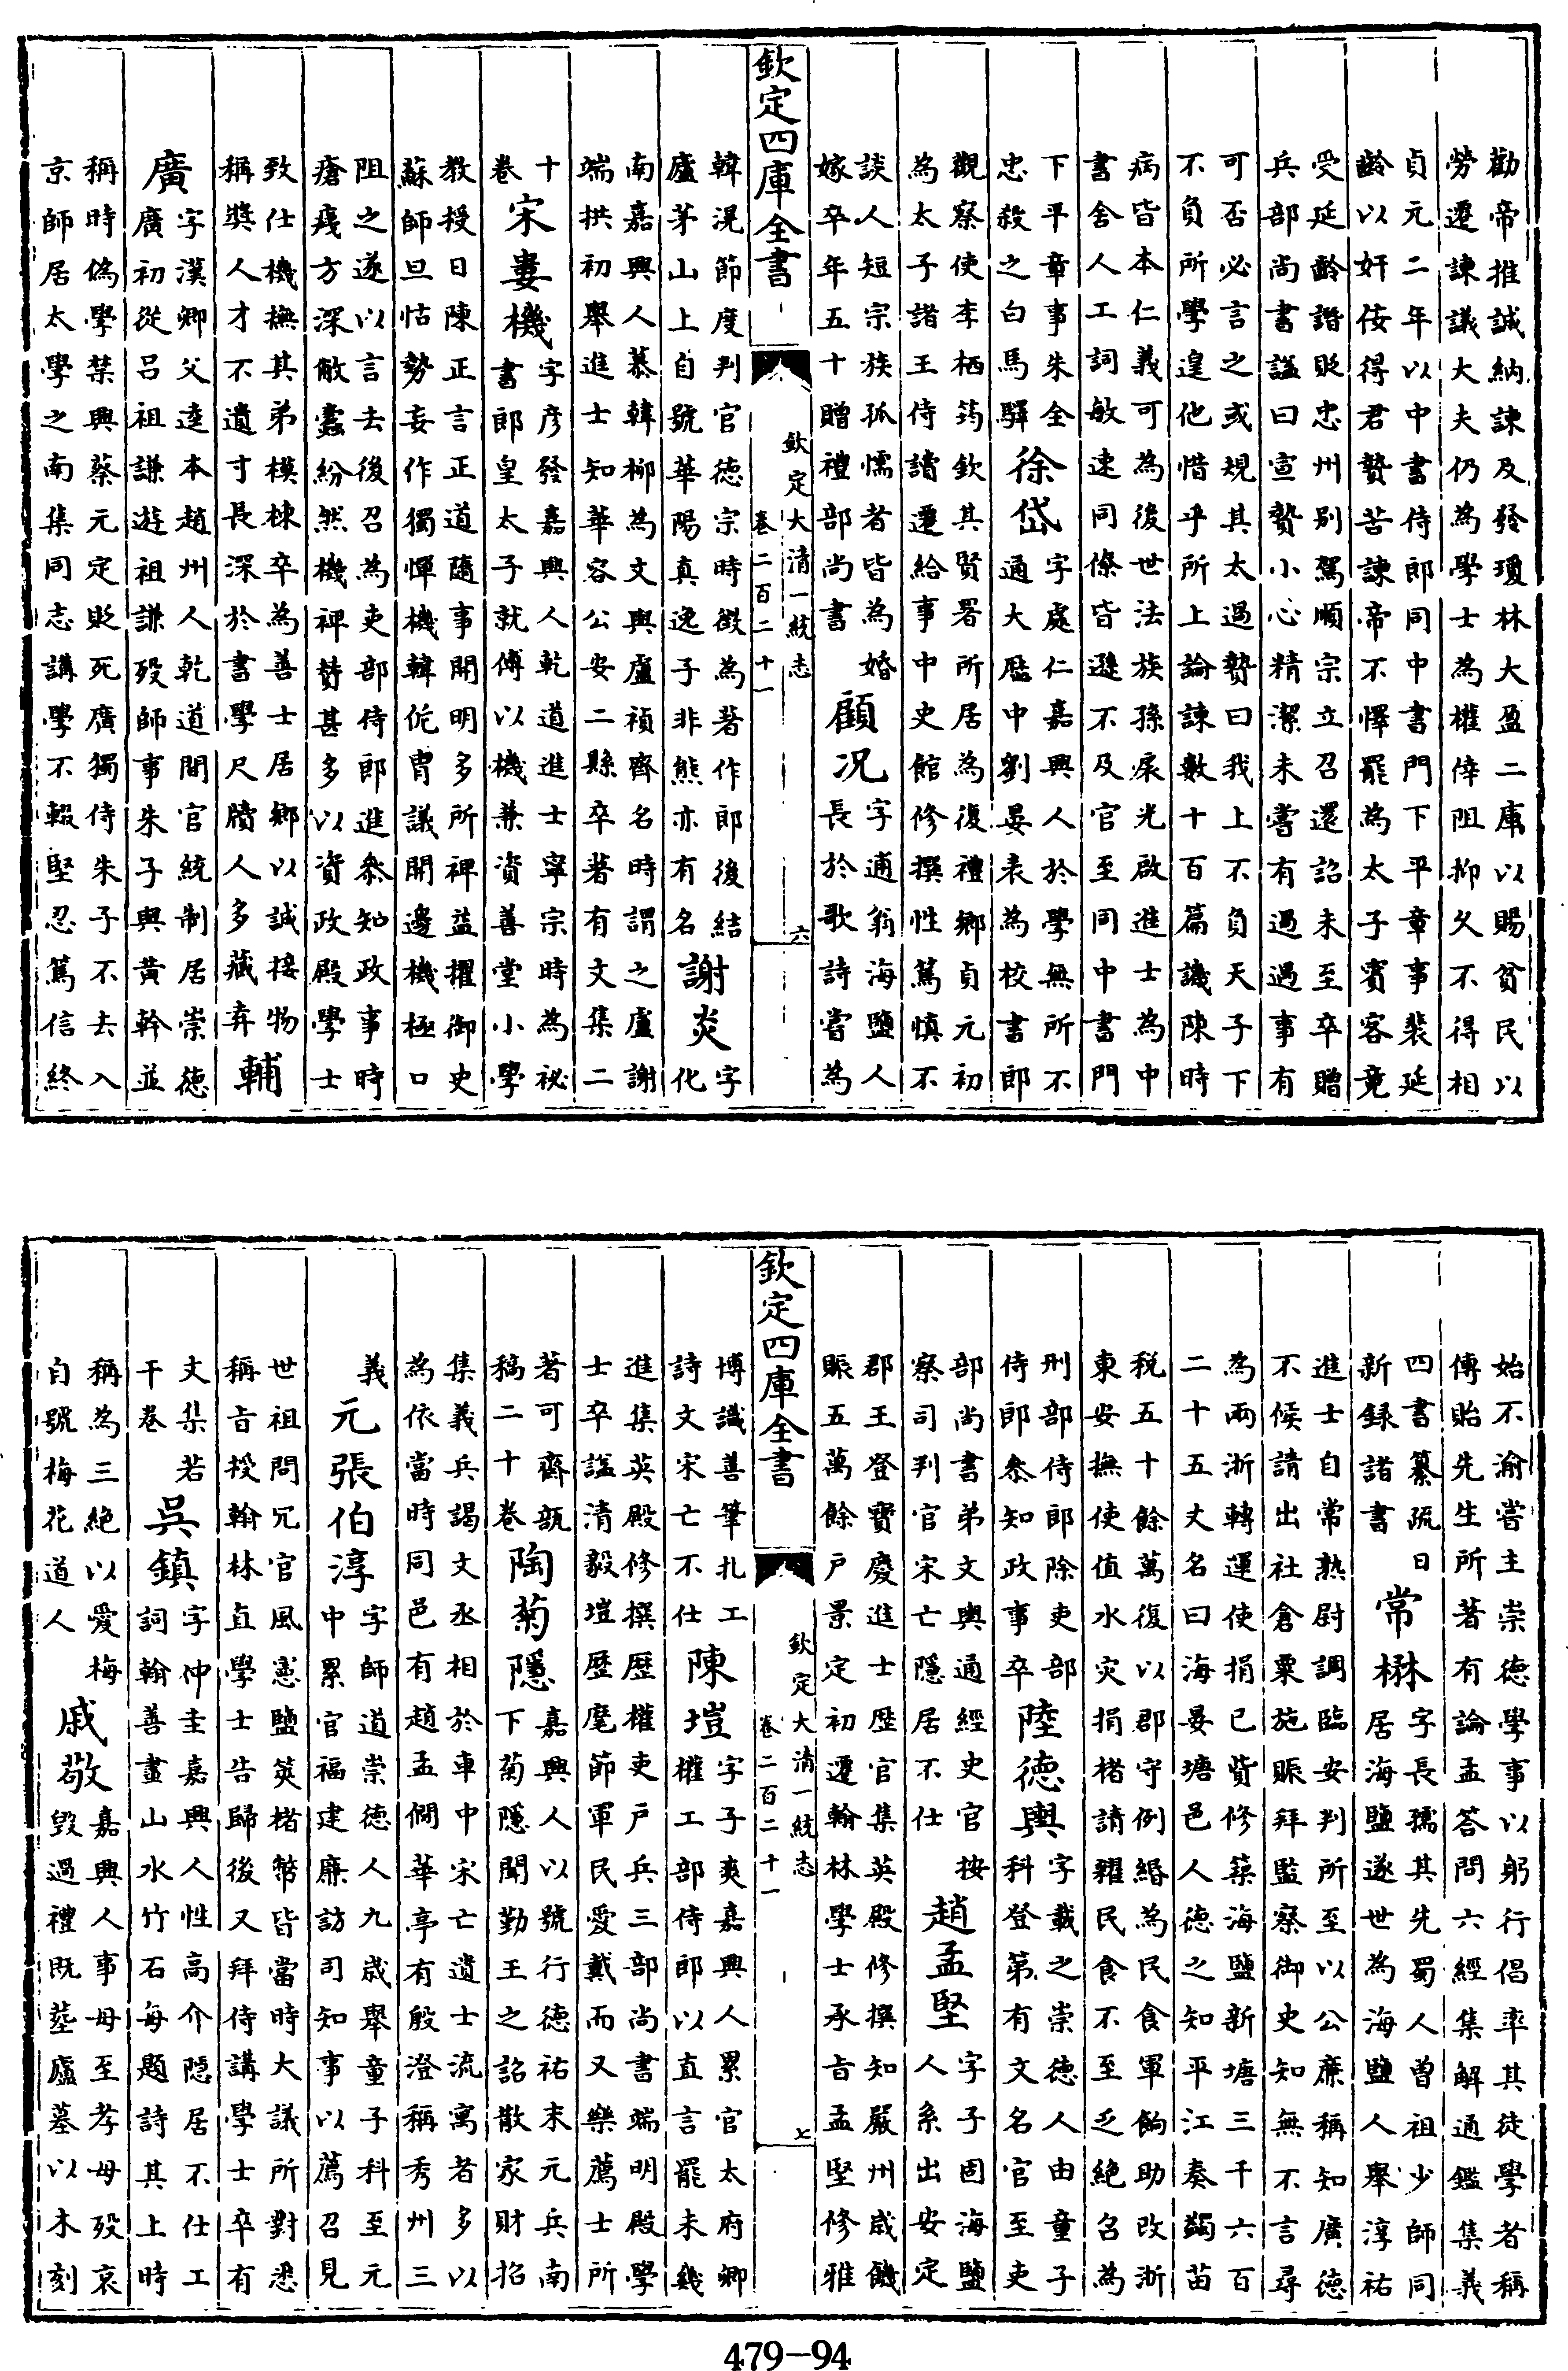 勸帝推誠納諫及發瓊林大盈二庫以賜貧民以
勞遷諫議大夫仍為學士為權倖阻抑久不得相
貞元二年以中書侍郎同中書門下平章事裴延
齡以奸佞得君贄苦諫帝不懌罷為太子賓客竟
受延齡譖貶忠州別駕順宗立召還詔未至卒贈
兵部尚書諡曰宣贄小心精潔未嘗有過遇事有
可否必言之或規其太過贄曰我上不負天子下
不負所學遑他惜乎所上論諫數十百篇譏陳時
病皆本仁義可為後世法族孫扆光啟進士為中
書舍人工詞敏速同僚皆遜不及官至同中書門
下平章事朱全
忠殺之白馬驛
徐岱
字處仁嘉興人於學無所不
通大厯中劉晏表為校書郎
觀察使李栖筠欽其賢署所居為復禮鄉貞元初
為太子諸王侍讀遷給事中史館修撰性篤慎不
談人短宗族孤惸者皆為婚
嫁卒年五十贈禮部尚書
顧况
字逋翁海鹽人
長於歌詩嘗為
欽定四庫全書
欽定大清一統志
卷二百二十一
六
韓滉節度判官德宗時徵為著作郎後結
廬茅山上自號華陽真逸子非熊亦有名
謝炎
字
化
南嘉興人慕韓柳為文與盧禎齊名時謂之盧謝
端拱初舉進士知華容公安二縣卒著有文集二
十
卷
宋婁機
字彥發嘉興人乾道進士寧宗時為祕
書郎皇太子就傅以機兼資善堂小學
教授日陳正言正道隨事開明多所裨益擢御史
蘇師旦怙勢妄作獨憚機韓侂胄議開邊機極口
阻之遂以言去後召為吏部侍郎進叅知政事時
瘡痍方深敝蠹紛然機裨贊甚多以資政殿學士
致仕機撫其弟模棟卒為善士居鄉以誠接物
稱獎人才不遺寸長深於書學尺牘人多藏弆
輔
廣
字漢卿父逵本趙州人乾道間官統制居崇德
廣初從呂祖謙遊祖謙歿師事朱子與黃幹並
稱時偽學禁興蔡元定貶死廣獨侍朱子不去入
京師居太學之南集同志講學不輟堅忍篤信終
始不渝嘗主崇德學事以躬行倡率其徒學者稱
傳貽先生所著有論孟答問六經集解通鑑集義
四書纂疏日
新録諸書
常楙
字長孺其先蜀人曾祖少師同
居海鹽遂世為海鹽人舉淳祐
進士自常熟尉調臨安判所至以公廉稱知廣德
不候請出社倉粟施賑拜監察御史知無不言尋
為兩浙轉運使捐已貲修築海鹽新塘三千六百
二十五丈名曰海晏塘邑人德之知平江奏蠲苗
税五十餘萬復以郡守例緡為民食軍餉助改浙
東安撫使值水灾捐楮請糴民食不至乏絕召為
刑部侍郎除吏部
侍郎叅知政事卒
陸德輿
字載之崇德人由童子
科登第有文名官至吏
部尚書弟文輿通經史官按
察司判官宋亡隱居不仕
趙孟堅
字子固海鹽
人系出安定
郡王登寶慶進士歴官集英殿修撰知嚴州歲饑
賑五萬餘户景定初遷翰林學士承旨孟堅修雅
欽定四庫全書
欽定大清一統志
卷二百二十一
七
博識善筆扎工
詩文宋亡不仕
陳塏
字子爽嘉興人累官太府卿
權工部侍郎以直言罷未幾
進集英殿修撰歴權吏户兵三部尚書端明殿學
士卒諡清毅塏歴麾節軍民愛戴而又樂薦士所
著可齋瓿
稿二十卷
陶菊隱
嘉興人以號行德祐末元兵南
下菊隱聞勤王之詔散家財招
集義兵謁文丞相於車中宋亡遺士流寓者多以
為依當時同邑有趙孟僩華亭有殷澄稱秀州三
義
元張伯淳
字師道崇德人九歲舉童子科至元
中累官福建廉訪司知事以薦召見
世祖問冗官風憲鹽筴楮幣皆當時大議所對悉
稱旨授翰林直學士告歸後又拜侍講學士卒有
文集若
干卷
吳鎮
字仲圭嘉興人性高介隠居不仕工
詞翰善畫山水竹石每題詩其上時
稱為三絕以愛梅
自號梅花道人
戚敬
嘉興人事母至孝母歿哀
毀過禮既塟廬墓以木刻
479-94